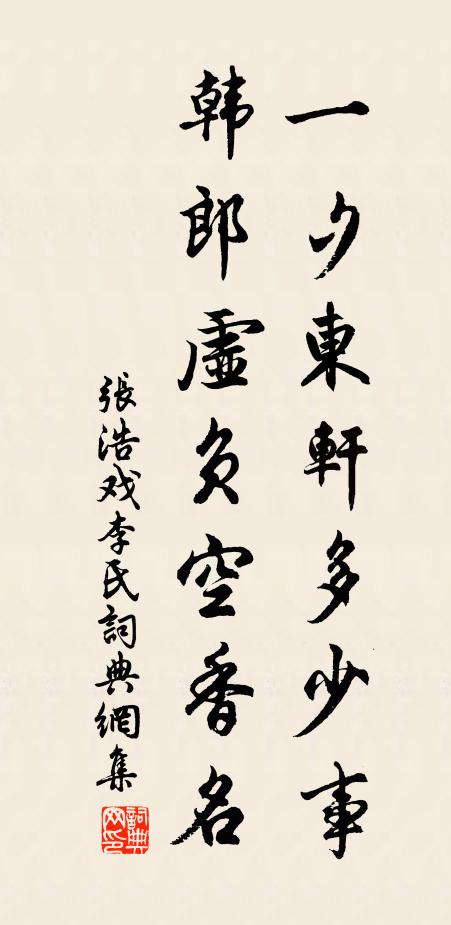 一夕東軒多少事
韩郎虛負空香名
張浩戏李氏詞典網集
詞典网印